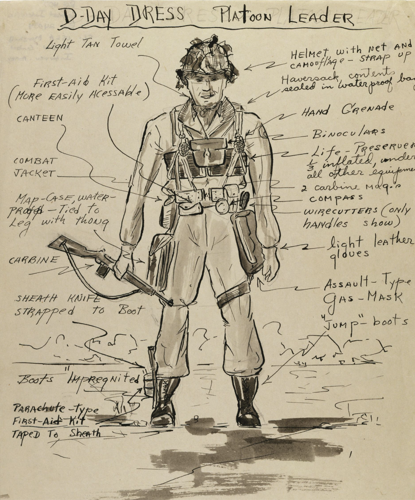 D-DAY DRESS PLATOON LEADER
Light Tan Towel
First-Aid Kit
(More Easily Acessable)
CANTEEN
COMBAT
JACKET
Map-Case, water-
proofed - Tied to
Leg with thong
CARBINE
SHEATH KNIFE
STRAPPED to Boot
Boots "Impregnited"
Parachute-Type
First-Aid Kit
TAPED TO Sheath
HELMET with NET AND
CAMOUFLAGE - STRAP UP
Haversack, content
sealed in waterproof bag
Hand Grenade
Binoculars
Life-Preserver
inflated, under
all other equipm
2 carbine mag's
COMPASS
WIRECUTTERS (only
handles show)
light leather
gloves
Assault-Type
Gas-Mask
"Jump"-boots